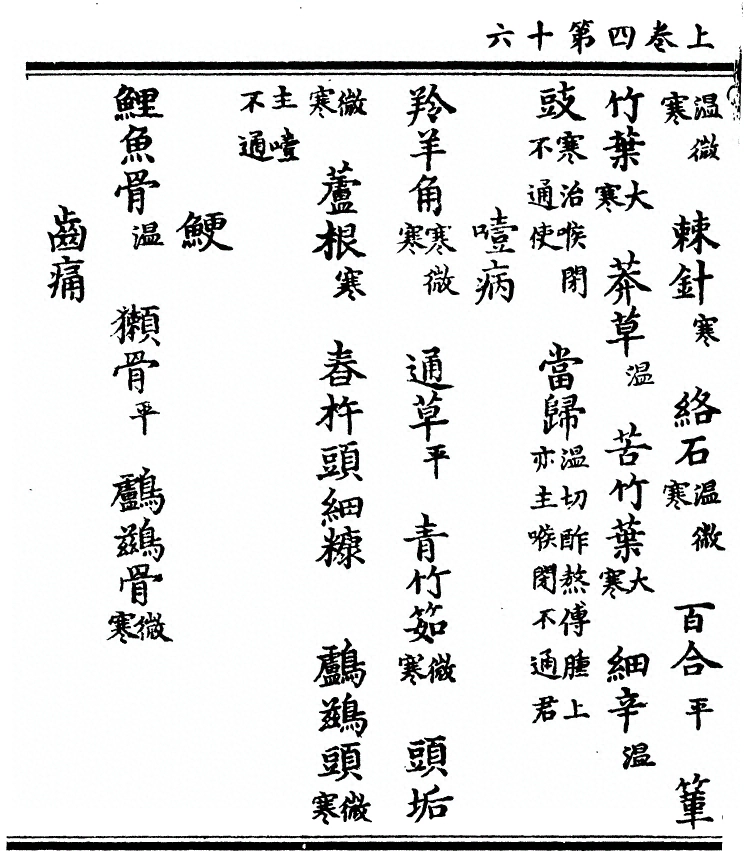 上卷四第十六
温微寒 棘針寒 絡石温微寒 百合平 篳
竹葉大寒 莽草温 苦竹葉大寒 細辛温
豉寒治喉閉不通使 當歸温切酢熬傅腫上亦主喉閉不通君
噎病
羚羊角寒微寒 通草平 青竹筎微寒 頭垢
微寒 蘆根寒 舂杵頭細糠 鸕鷀頭微寒
主噎不通
鯁
鯉魚骨温 獺骨平 鸕鷀骨微寒
齒痛